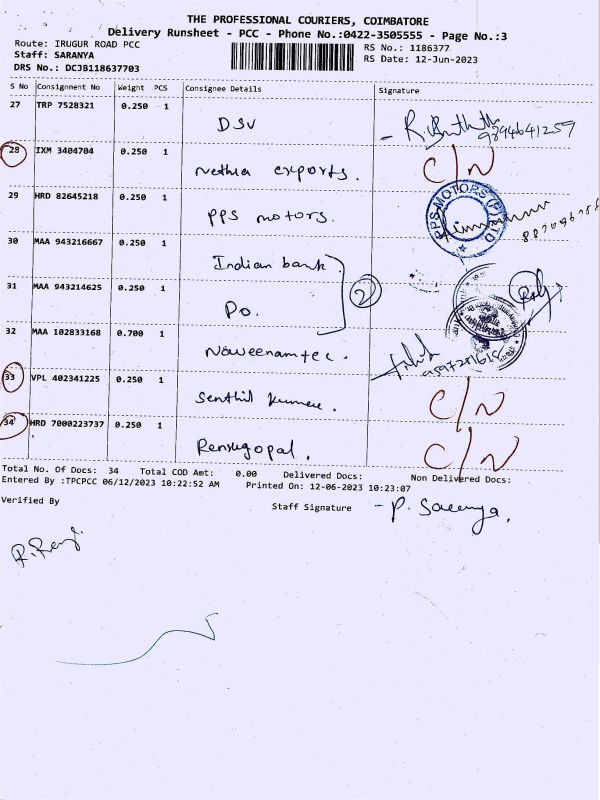 THE PROFESSIONAL COURIERS, COIMBATORE
Delivery Runsheet - PCC - Phone No.:0422-3505555 - Page No.:3
Route: IRUGUR ROAD PCC
Staff: SARANYA
DRS No.: DCJB118637703
RS No.: 1186377
RS Date: 12-Jun-2023
S No Consignment No Weight PCS Consignee Details Signature
27 TRP 7528321 0.250 1 DSV
9894641259
28 IXM 3404704 0.250 1 Nethra exports. C/N
29 HRD 82645218 0.250 1 PPS motors.
PPS MOTORS (P) LTD
30 MAA 943216667 0.250 1 Indian bank
31 MAA 943214625 0.250 1 Do. 2
32 MAA 102833168 0.700 1 Naveenamtec.
33 VPL 402341225 0.250 1 Senthil Kumar. C/N
34 HRD 7000223737 0.250 1 Renugopal. C/N
Total No. Of Docs: 34 Total COD Amt: 0.00 Delivered Docs: Non Delivered Docs:
Entered By :TPCPCC 06/12/2023 10:22:52 AM Printed On: 12-06-2023 10:23:07
Verified By Staff Signature - P. Saranya.